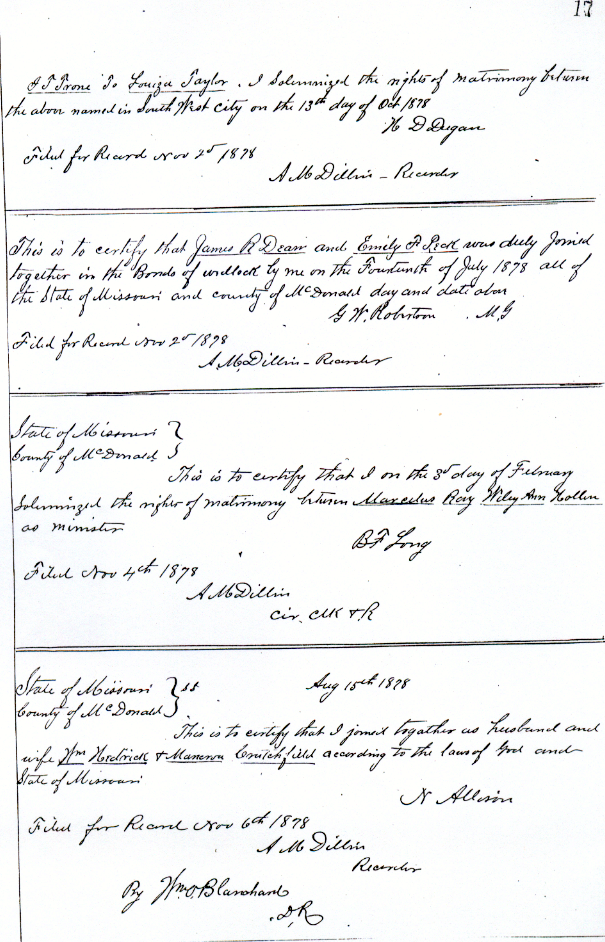 17
J T Trone To Louiza Taylor. I Solemnized the rights of matrimony between
the above named in South West City on the 13th day of Oct 1878
H D Dugan
Filed for Record Nov 2d 1878
A M Dillin - Recorder
This is to certify that James R Dean and Emily F Peck was duly Joined
together in the Bonds of wedlock by me on the Fourteenth of July 1878 all of
the State of Missouri and county of McDonald day and date abov
G W. Robertson M. G
Filed for Record Nov 2d 1878
A. M. Dillin - Recorder
State of Missouri }
County of McDonald }
This is to certify that I on the 3d day of February
Solemnized the rights of matrimony between Marcelus Ray Wiley Ann
as minister
B F Long
Filed Nov 4th 1878
A M Dillin
Cir. Clk & R
State of Missouri } ss Aug 15th 1878
County of McDonald }
This is to certify that I joined together as husband and
wife Wm Hedrick & Crutchfield according to the laws of God and
State of Missouri
N Allison
Filed for Record Nov 6th 1878
A M Dillin
Recorder
By Wm O. Blanchard
D. R